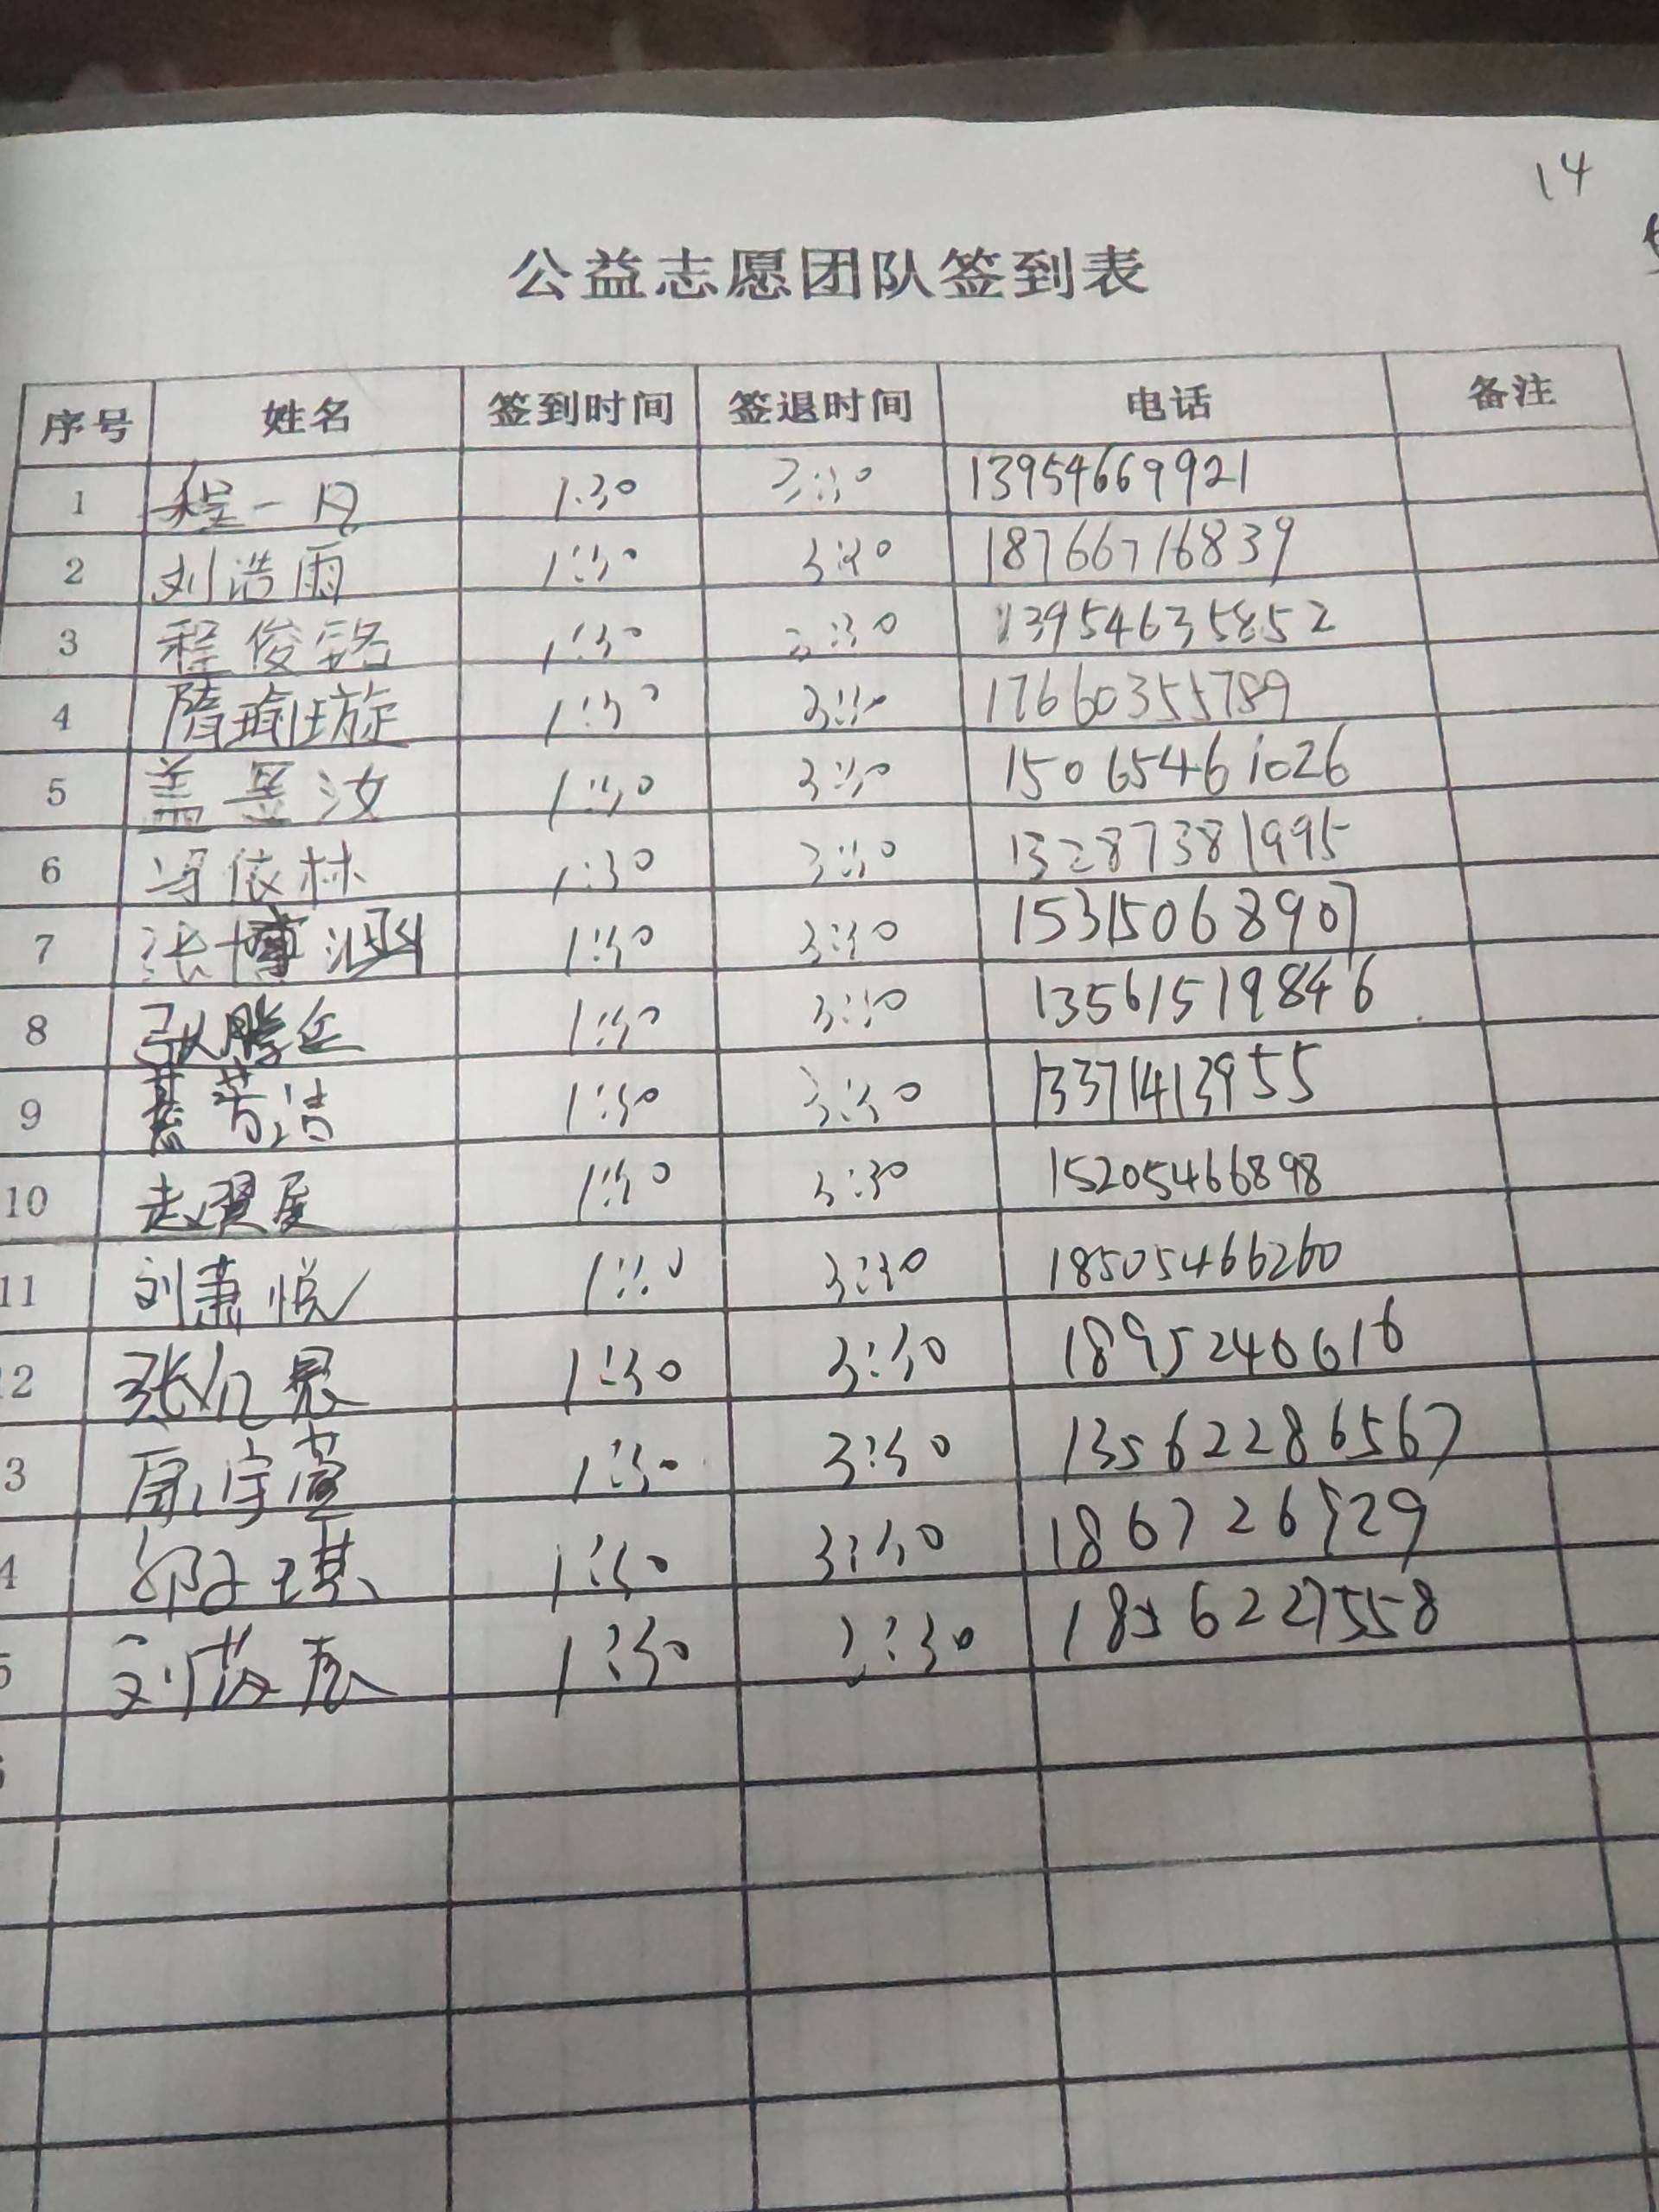 14
公益志愿团队签到表
序号 姓名 签到时间 签退时间 电话 备注
1 程一凡 1:30 3:30 13954669921
2 刘浩雨 1:30 3:30 18766716839
3 程俊铭 1:30 3:30 13954635852
4 隋瑜璇 1:30 3:30 17660355789
5 盖昱汝 1:30 3:30 15065461026
6 冯依林 1:30 3:30 13287381995
7 张博涵 1:30 3:30 15315068907
8 张腾 1:30 3:30 13561519846
9 洁 1:30 3:30 13371413955
10 赵翼 1:30 3:30 15205466898
11 刘萧悦 1:30 3:30 18505466260
2 张亿 1:30 3:30 1895240616
3 宇萱 1:30 3:30 13562286567
4 子琪 1:30 3:30 186726529
5 刘 1:30 3:30 1856227558